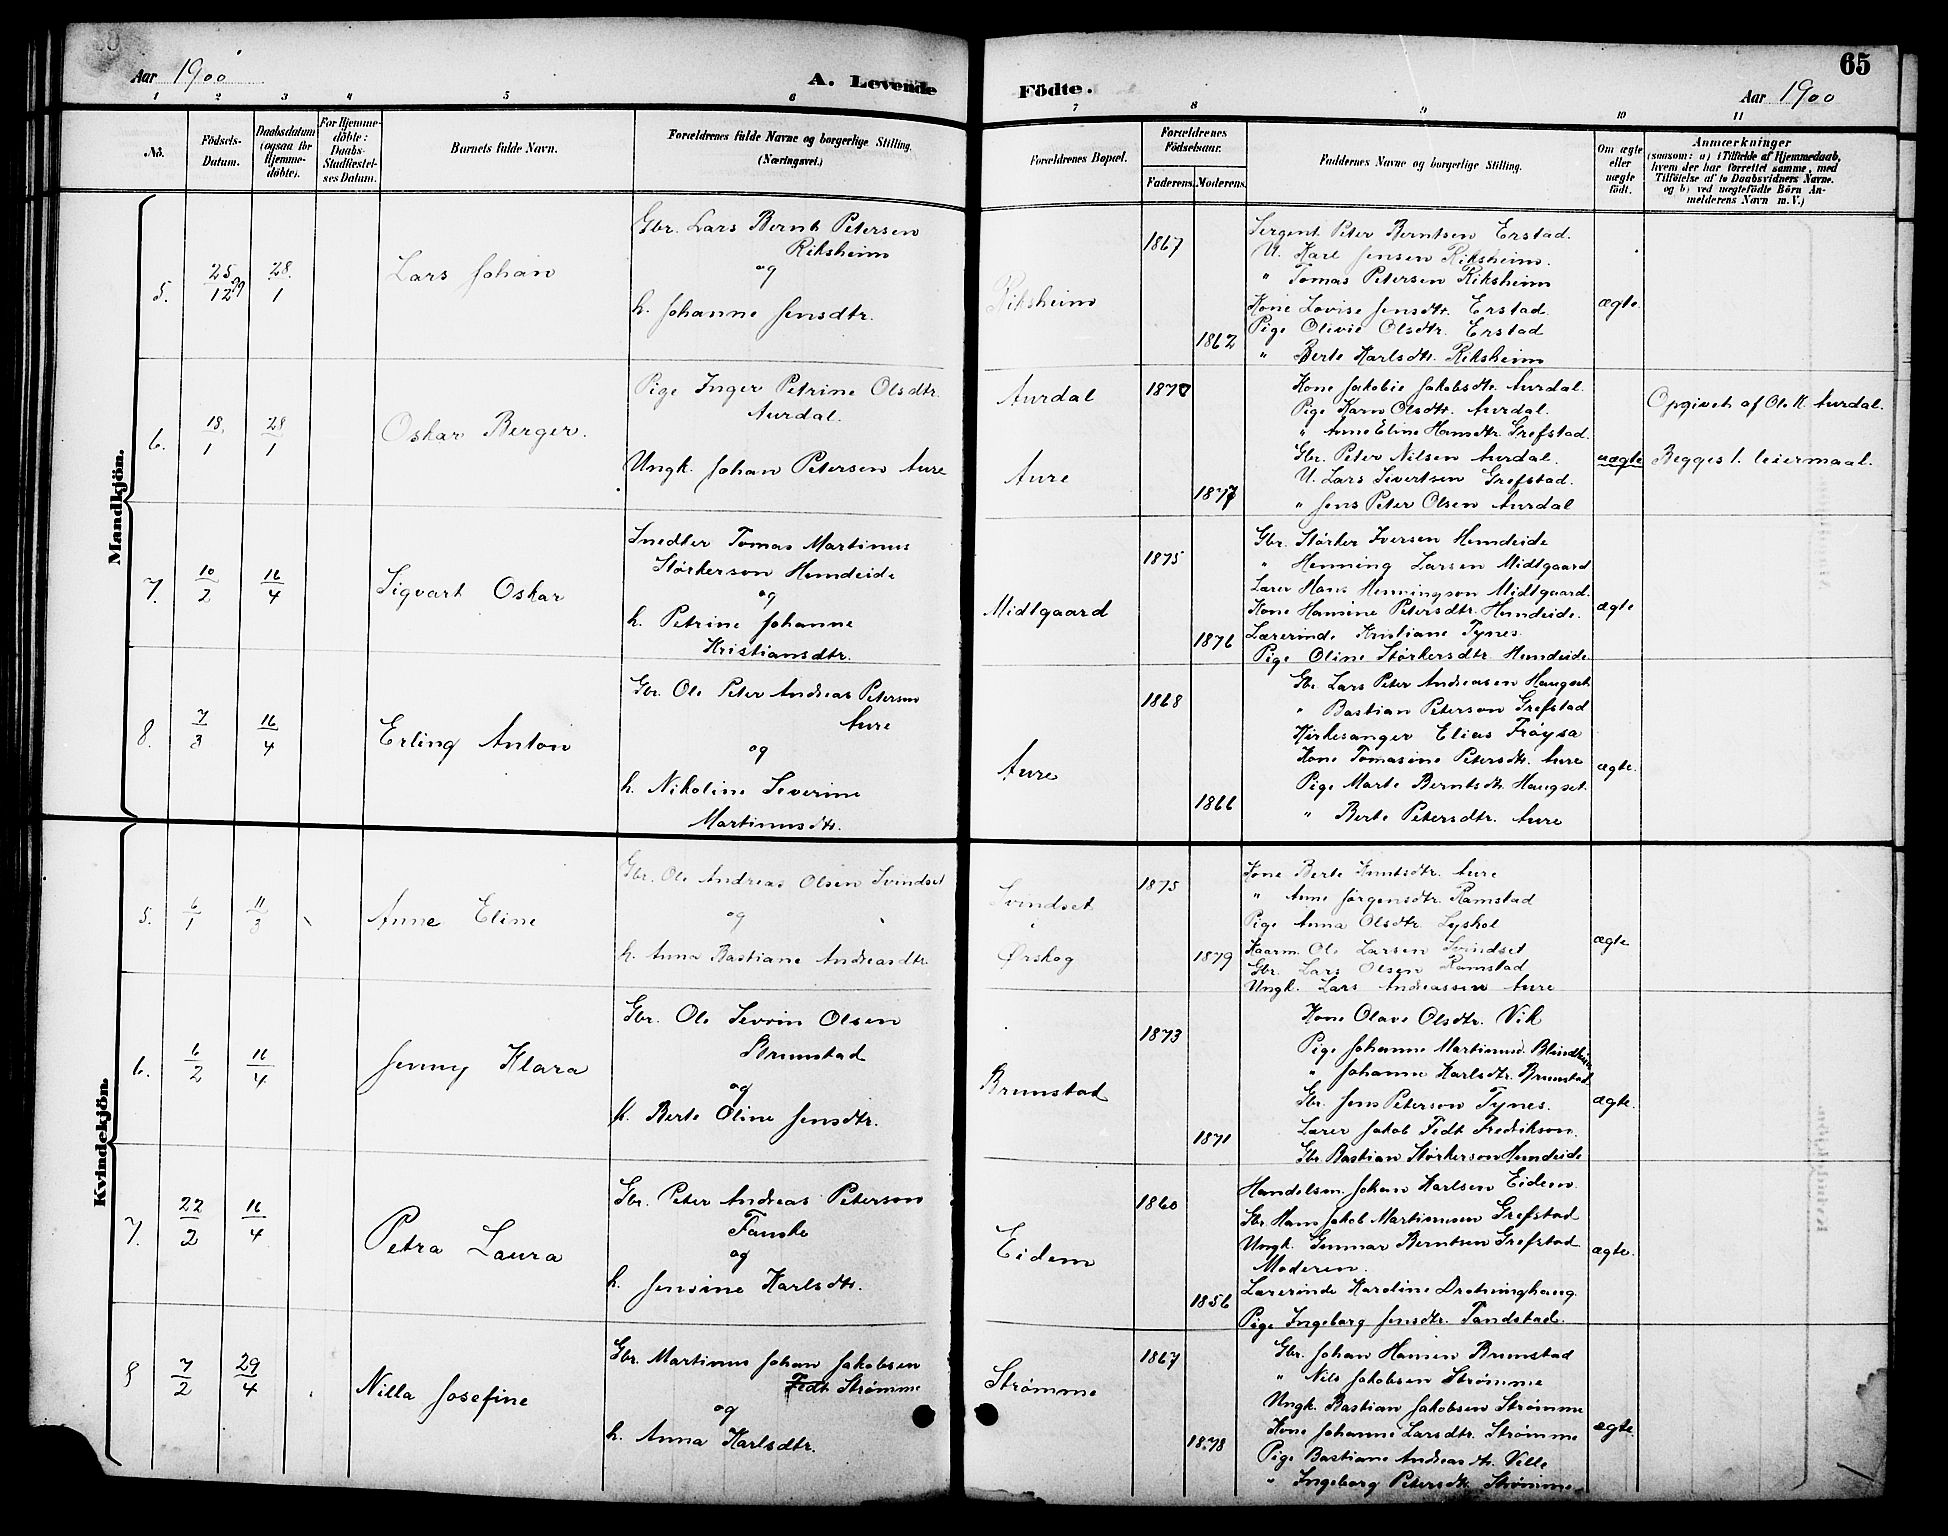 65
Aar 1900
A. Levende
Födte.
Aar 1900
1 2 3 4 5 6 7 8 9 10 11
No.
Födsels-
Datum.
Daabsdatum
(ogsaa for
Hjemme-
döbte).
For Hjemme-
döbte:
Daabs-
Stadfæstel-
ses Datum.
Barnets fulde Navn.
Forældrenes fulde Navne og borgerlige Stilling.
(Næringsvei.)
Forældrenes Bopæl.
Forældrenes
Födselsaar.
Faderens. Moderens.
Faddernes Navne og borgerlige Stilling.
Om ægte
eller
uægte
födt.
Anmærkninger
(saasom: a) i Tilfælde af Hjemmedaab,
hvem der har forrettet samme, med
Tilföielse af to Daabsvidners Navne.
og b) ved uægtefödte Börn An-
melderens Navn m. V.)
Mandkjön.
5.
25/12 99
28/1
Lars Johan
Gbr. Lars Bernt Petersen
Riksheim
og
h. Johanne Jensdtr.
Riksheim
1867
1862
Sergent Peter Berntsen Erstad.
U. Karl Jensen Riksheim.
" Tomas Petersen Riksheim
Kone Lovise Jensdtr. Erstad
Pige Olivie Olsdtr. Erstad
" Berte Karlsdtr. Riksheim
ægte.
6.
18/1
28/1
Oskar Berger.
Pige Inger Petrine Olsdtr.
Aurdal.
Ungk. Johan Petersen Aure
Aurdal
Aure
1870
1877
Kone Jakobie Jakobsdtr. Aurdal.
Pige Karn Olsdtr. Aurdal.
" Anne Eline Hansdtr. Grefstad.
Gbr. Peter Nilsen Aurdal.
U. Lars Sivertsen Grefstad.
" Jens Peter Olsen Aurdal
uægte
Opgivet af Ole K. Aurdal.
Begges 1. leiermaal.
7.
10/2
16/4
Sigvart Oskar
Snedker Tomas Martinus
Størkerson Hundeide
og
h. Petrine Johanne
Kristiansdtr.
Midtgaard
1875
1876
Gbr. Størker Iversen Hundeide
" Henning Larsen Midtgaard
Lærer Hans Henningson Midtgaard.
Kone Hansine Petersdtr. Hundeide.
Lærerinde Kristiane Tynes.
Pige Oline Størkersdtr. Hundeide.
ægte
8.
7/3
16/4
Erling Anton
Gbr. Ole Peter Andreas Peterson
Aure
og
h. Nikoline Severine
Martinusdtr.
Aure
1868
1866
Gbr. Lars Peter Andreasen Haugset.
" Bastian Peterson Grefstad
Kirkesanger Elias Frøysa
Kone Tomasine Petersdtr. Aure
Pige Marte Berntsdtr. Haugset.
" Berte Petersdtr. Aure
ægte.
Kvindekjön.
5.
6/1
11/3
Anne Eline
Gbr. Ole Andreas Olsen Svindset
og
h. Anna Bastiane Andreasdtr.
Svindset
i
Ørskog
1875
1879
Kone Berte Knutsdtr. Aure
" Anne Jørgensdtr. Ramstad
Pige Anna Olsdtr. Lyshol
Kaarm. Ole Larsen Svindset
Gbr. Lars Olsen Ramstad
Ungk. Lars Andreassen Aure
ægte
6.
6/2
16/4
Jenny Klara
Gbr. Ole Sevrin Olsen
Brunstad
og
h. Berte Oline Jensdtr.
Brunstad
1873
1871
Kone Olave Olsdtr. Vik
Pige Johanne Martinusd. Blindheim
" Johanne Karlsdtr. Brunstad
Gbr. Jens Peterson Tynes.
Lærer Jakob Fedt Fredrikson.
Gbr. Bastian Størkerson Hundeide
ægte.
7.
22/2
16/4
Petra Laura
Gbr. Peter Andreas Peterson
Fauske
og
h. Jensine Karlsdtr.
Eidem
1860
1856
Handelsm. Johan Karlsen Eidem.
Gbr. Hans Jakob Martinusen Grefstad
Ungk. Gunnar Berntsen Grefstad
Moderen.
Lærerinde Karoline Drotninghaug.
Pige Ingeborg Jensdtr. Tandstad.
ægte.
8
7/2
29/4
Nilla Josefine
Gbr. Martinus Johan Jakobsen
Fedt Strømme
og
h. Anna Karlsdtr.
Strømme
1867
1878
Gbr. Johan Hansen Brunstad
" Nils Jakobsen Strømme
Ungk. Bastian Jakobsen Strømme
Kone Johanne Larsdtr. Strømme
Pige Bastiane Andreasdtr. Velle
" Ingeborg Petersdtr. Strømme.
ægte.